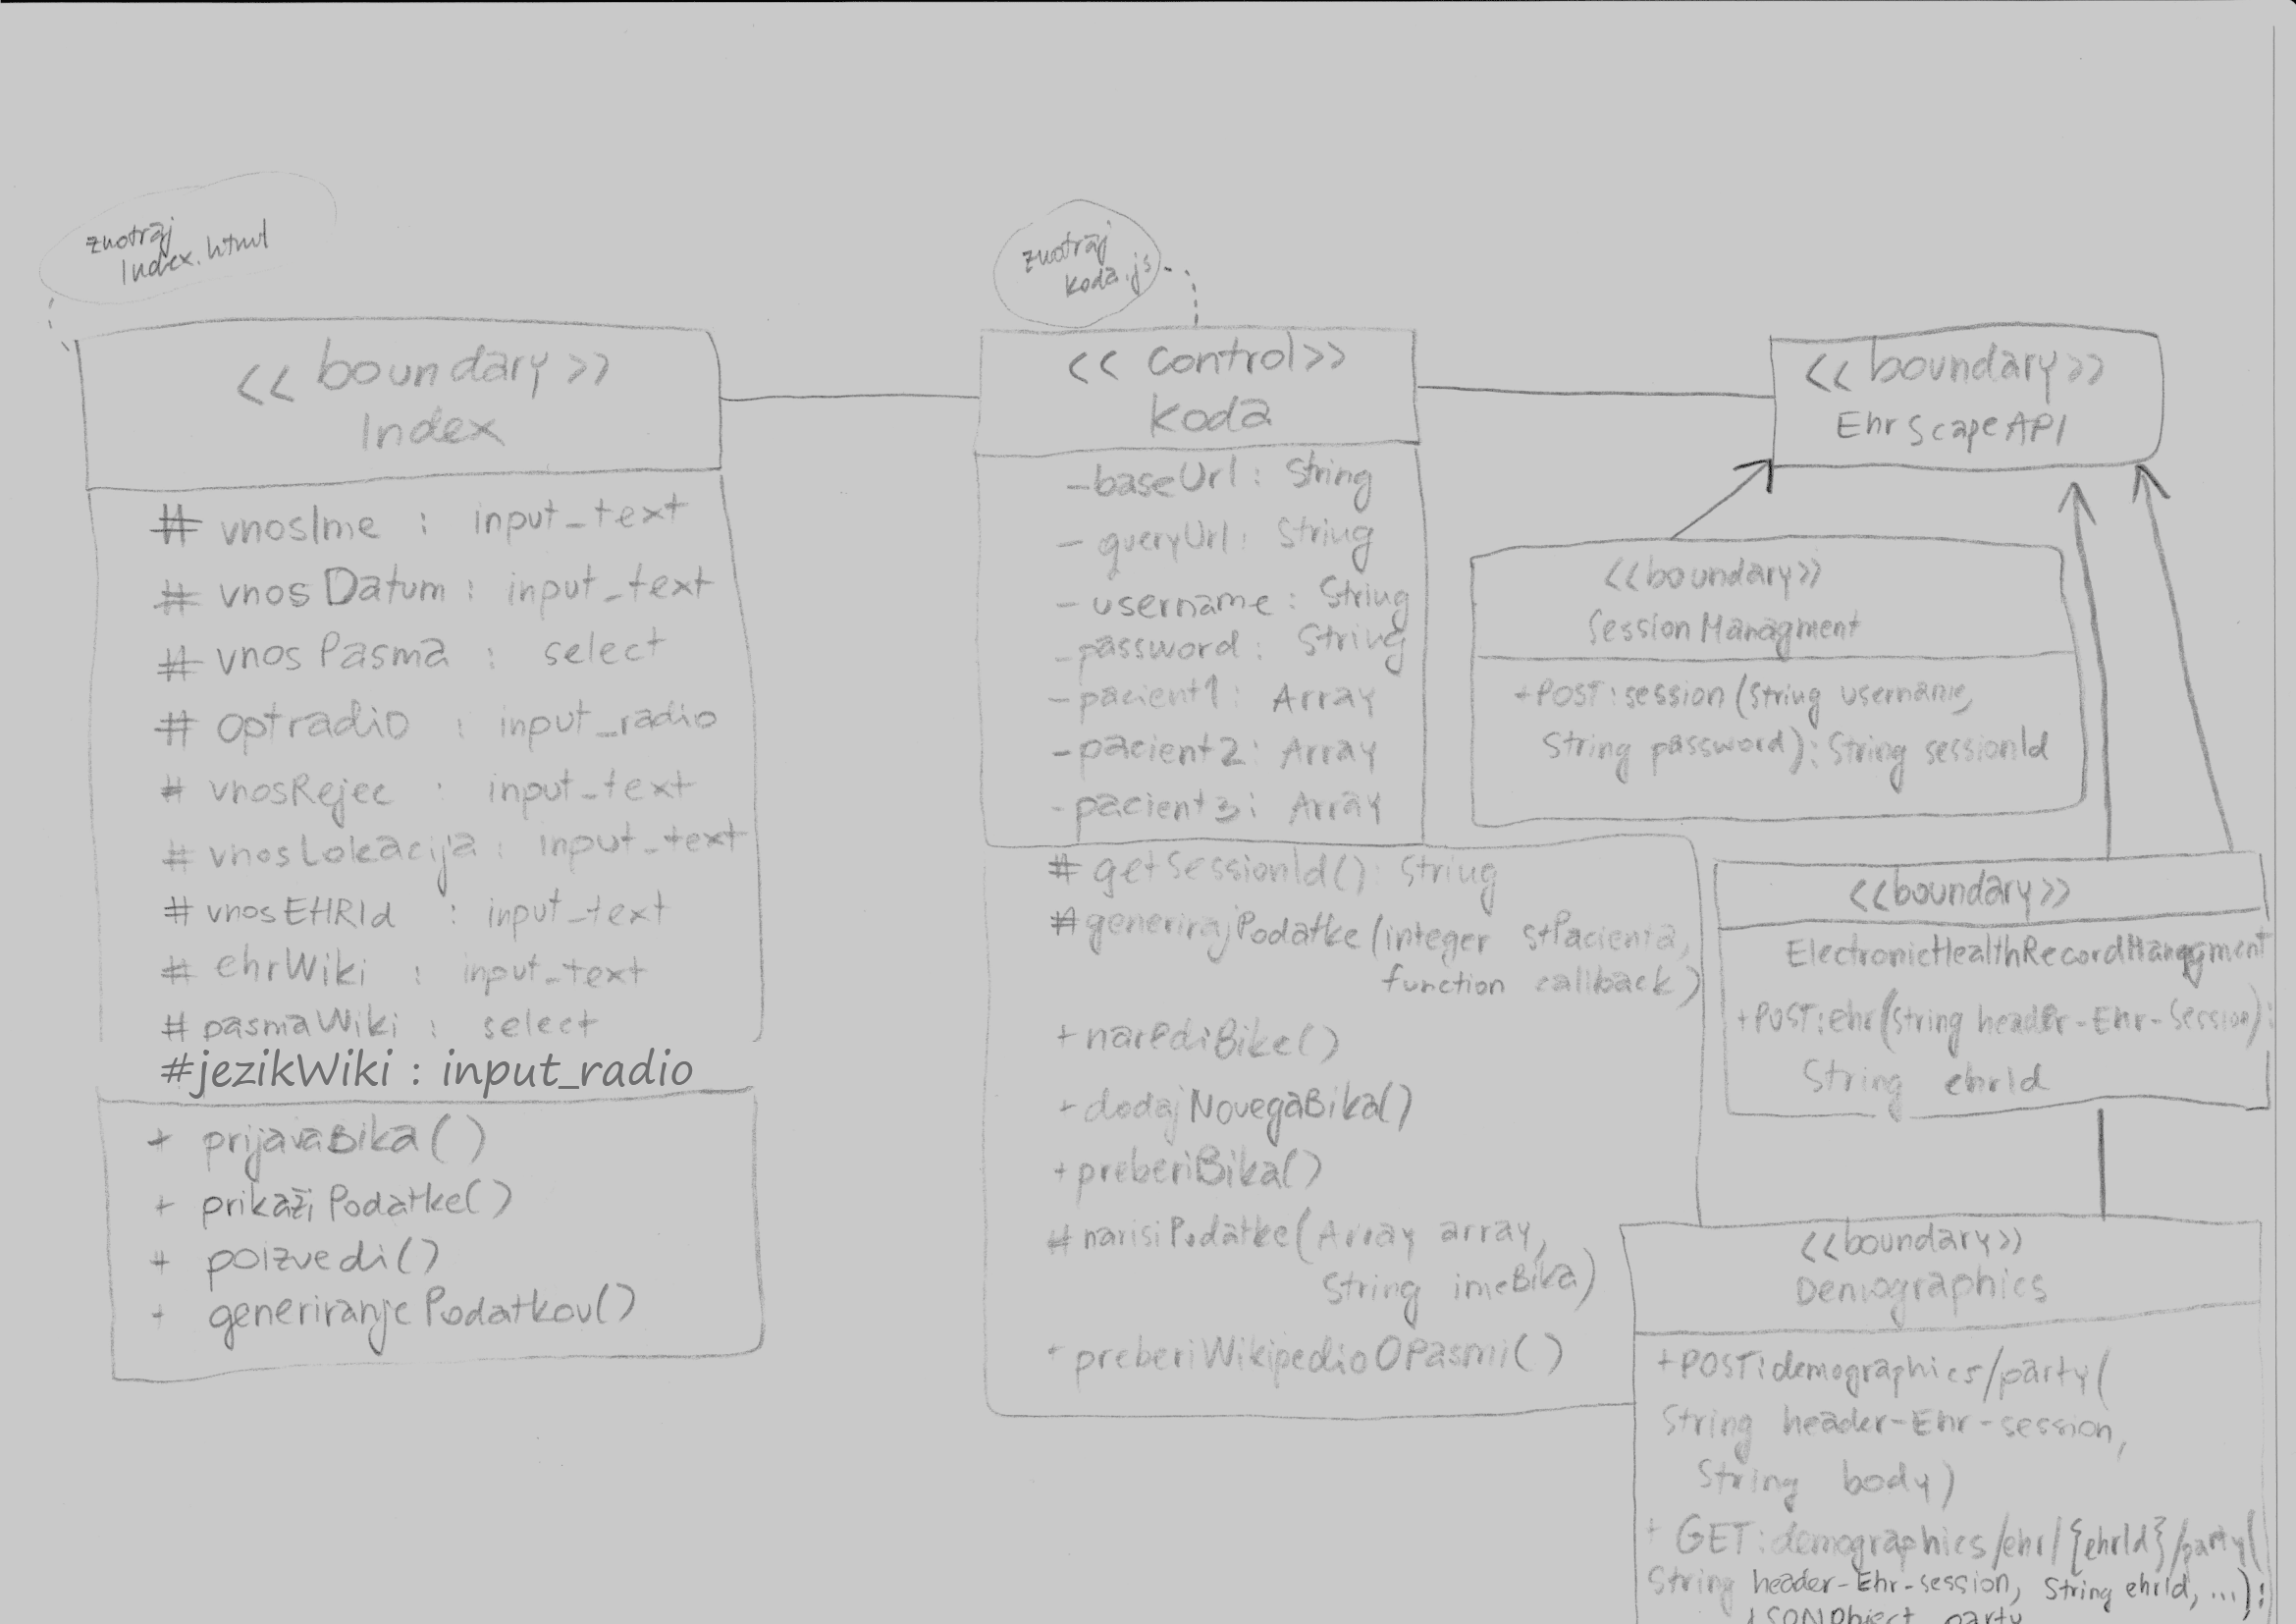 znotraj
Index.html
<<boundary>>
Index
# vnosIme : input_text
# vnosDatum : input_text
# vnosPasma : select
# optradio : input_radio
# vnosRejec : input_text
# vnosLokacija : input_text
# vnosEHRId : input_text
# ehrWiki : input_text
# pasmaWiki : select
#jezikWiki : input_radio
+ prijavaBika()
+ prikažiPodatke()
+ poizvedi()
+ generiranjePodatkov()
znotraj
koda.js
<<control>>
koda
-baseUrl: String
- queryUrl: String
- username: String
-password: String
-pacient1: Array
-pacient2: Array
-pacient3: Array
# getSessionId(): String
#generirajPodatke(integer stPacienta,
function callback)
+narediBike()
+dodajNovegaBika()
+preberiBika()
#narisiPodatke(Array array,
String imeBika)
+preberiWikipedioOPasmi()
<<boundary>>
EhrScapeAPI
<<boundary>>
SessionManagment
+POST:session(String username,
String password):String sessionId
<<boundary>>
ElectronicHealthRecordManagment
+POST:ehr(String header-Ehr-Session):
String ehrId
<<boundary>>
Demographics
+POST:demographics/party(
String header-Ehr-session,
String body)
+ GET:demographics/ehr/{ehrId}/party(
String header-Ehr-session, String ehrId, ...):
JSONObject party